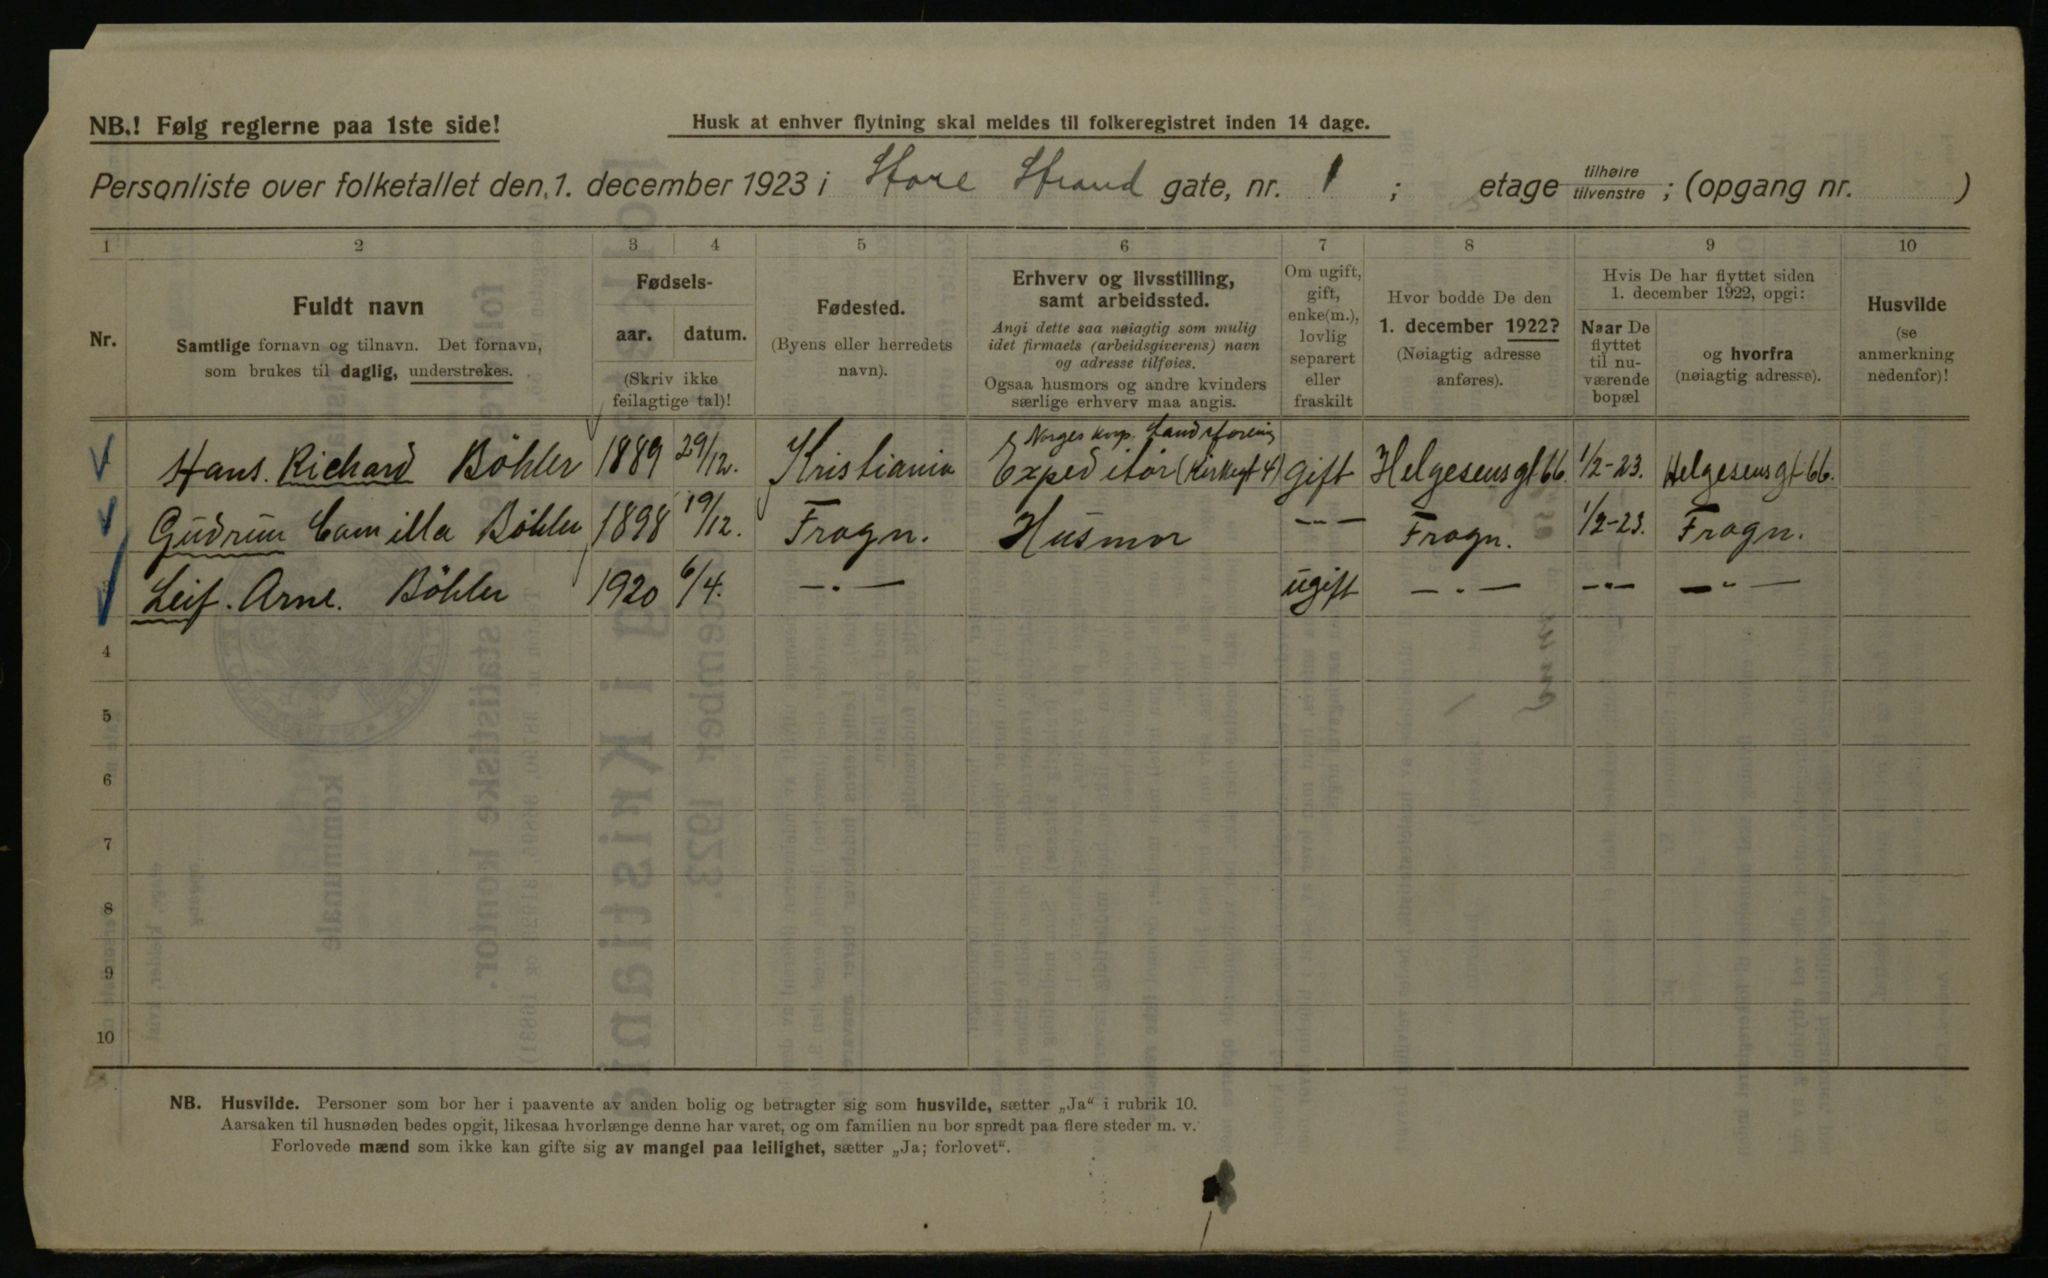 NB.! Følg reglerne paa 1ste side!
Husk at enhver flytning skal meldes til folkeregistret inden 14 dage.
Personliste over folketallet den 1. december 1923 i Store Strand gate, nr. 1 ; etage tilhøire tilvenstre ; (opgang nr. )
1 2 3 4 5 6 7 8 9 10
Nr.
Fuldt navn
Samtlige fornavn og tilnavn. Det fornavn,
som brukes til daglig, understrekes.
Fødsels-
aar. datum.
(Skriv ikke
feilagtige tal)!
Fødested.
(Byens eller herredets
navn).
Erhverv og livsstilling,
samt arbeidssted.
Angi dette saa nøiagtig som mulig
idet firmaets (arbeidsgiverens) navn
og adresse tilføies.
Ogsaa husmors og andre kvinders
særlige erhverv maa angis.
Om ugift,
gift,
enke(m.),
lovlig
separert
eller
fraskilt
Hvor bodde De den
1. december 1922?
(Nøiagtig adresse
anføres).
Hvis De har flyttet siden
1. december 1922, opgi:
Naar De
flyttet
til nu-
værende
bopæl
og hvorfra
(nøiagtig adresse).
Husvilde
(se
anmerkning
nedenfor)!
Norges Kop. Landsforening
Hans Richard Böhler 1889 29/12. Kristiania Expeditør (Kirkegt 4) gift Helgesensgt 66. 1/2-23. Helgesensgt 66.
Gudrun Camilla Böhler 1898 19/12. Frogn. Husmor -"- Frogn. 1/2-23. Frogn.
Leif. Arne. Böhler 1920 6/4. -"- ugift -"- -"- -"-
4
5
6
7
8
9
10
NB. Husvilde. Personer som bor her i paavente av anden bolig og betragter sig som husvilde, sætter „Ja“ i rubrik 10.
Aarsaken til husnøden bedes opgit, likesaa hvorlænge denne har varet, og om familien nu bor spredt paa flere steder m. v.
Forlovede mænd som ikke kan gifte sig av mangel paa leilighet, sætter „Ja; forlovet“.